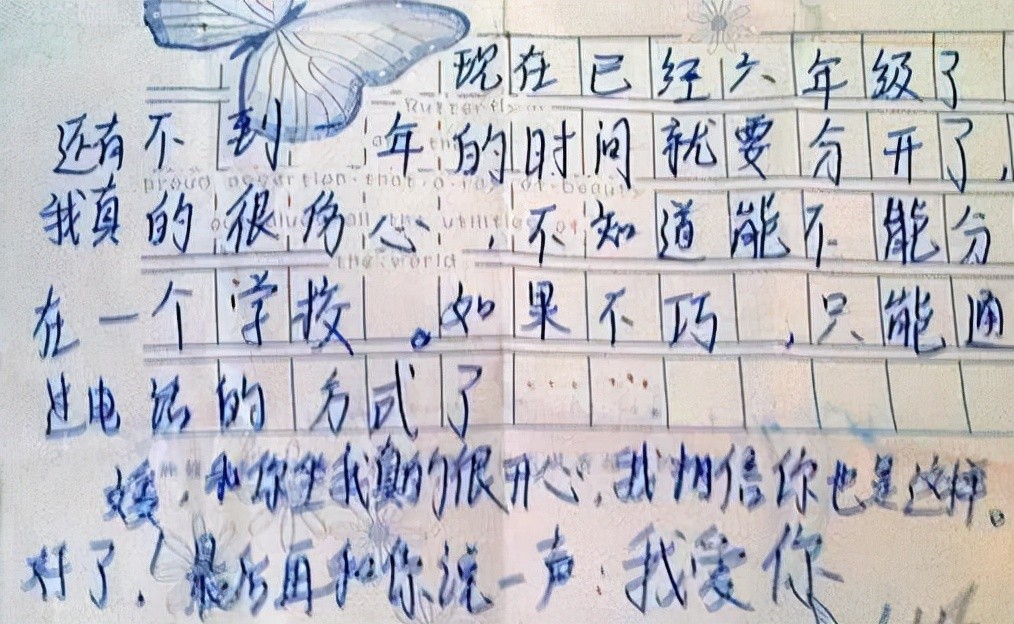 现在已经六年级了
还有不到一年的时间就要分开了,
我真的很伤心,不知道能不能分
在一个学校。如果不巧,只能通
过电话的方式了……
,和你坐我真的很开心,我相信你也是这样。
好了!最后再和你说一声:我爱你